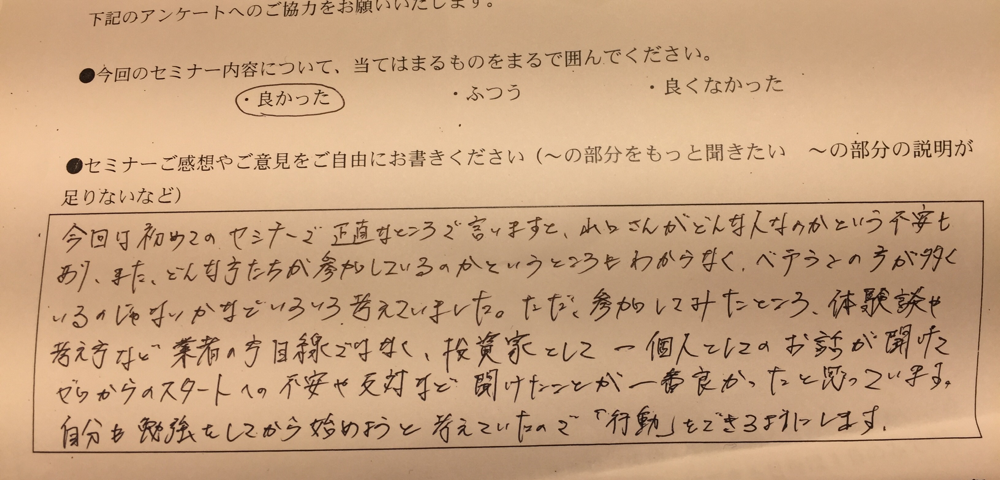 下記のアンケートへのご協力をお願いいたします。
●今回のセミナー内容について、当てはまるものをまるで囲んでください。
・良かった ・ふつう ・良くなかった
●セミナーご感想やご意見をご自由にお書きください(～の部分をもっと聞きたい ～の部分の説明が
足りないなど)
今回は初めてのセミナーで正直なところで言いますと、さんがどんな人なのかという不安も
あり、また、どんな方たちが参加しているのかというところもわからなく、ベテランの方が多く
いるのじゃないかなどいろいろ考えていました。ただ、参加してみたところ、体験談や
考え方など業者の方目線ではなく、投資家として一個人としてのお話が聞けて
ゼロからのスタートへの不安や反対など聞けたことが一番良かったと思っています。
自分も勉強をしてから始めようと考えていたので「行動」をできるようにします。